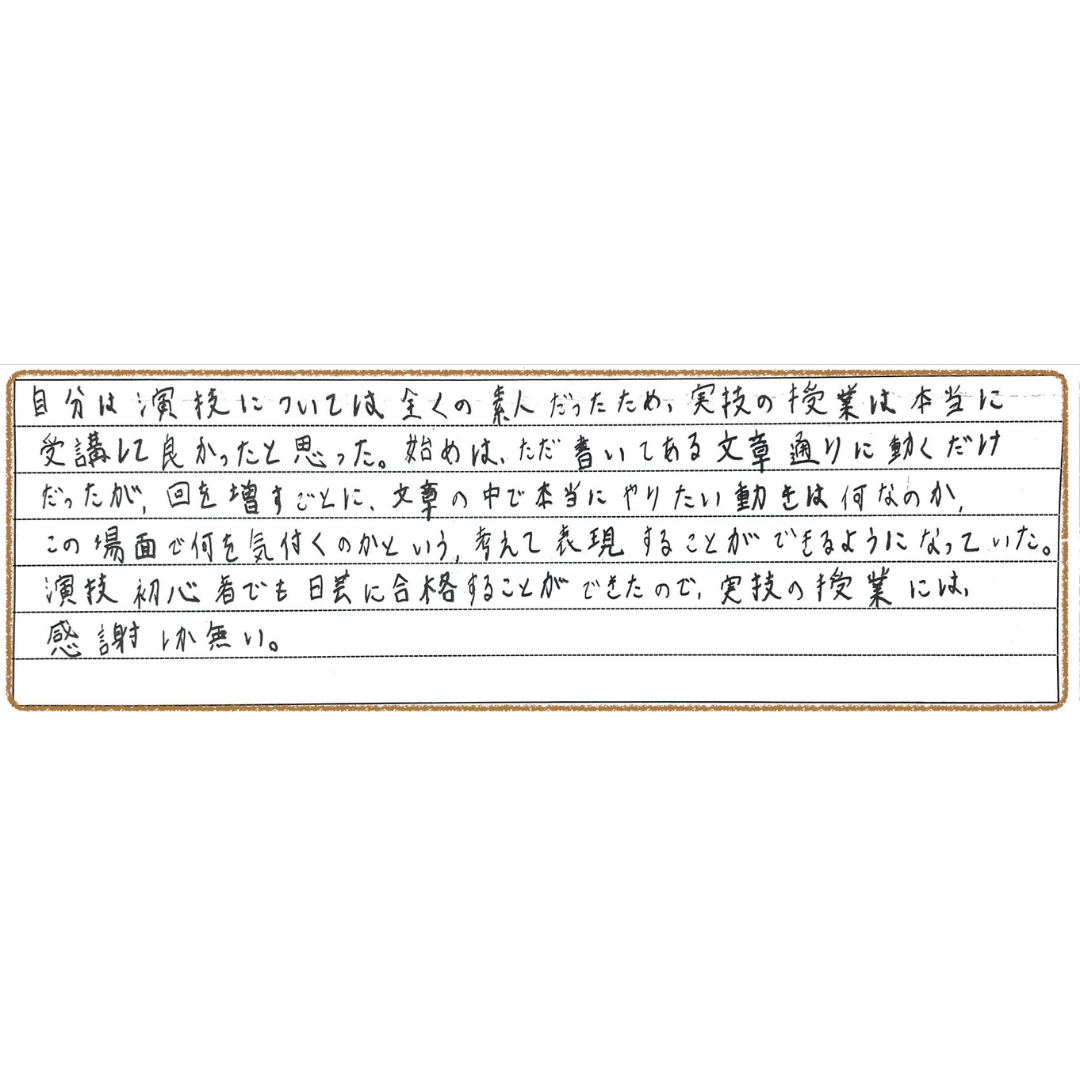 自分は演技については全くの素人だったため、実技の授業は本当に
受講して良かったと思った。始めは、ただ書いてある文章通りに動くだけ
だったが、回を増すごとに、文章の中で本当にやりたい動きは何なのか、
この場面で何を気付くのかという、考えて表現することができるようになっていた。
演技初心者でも日芸に合格することができたので、実技の授業には、
感謝しか無い。